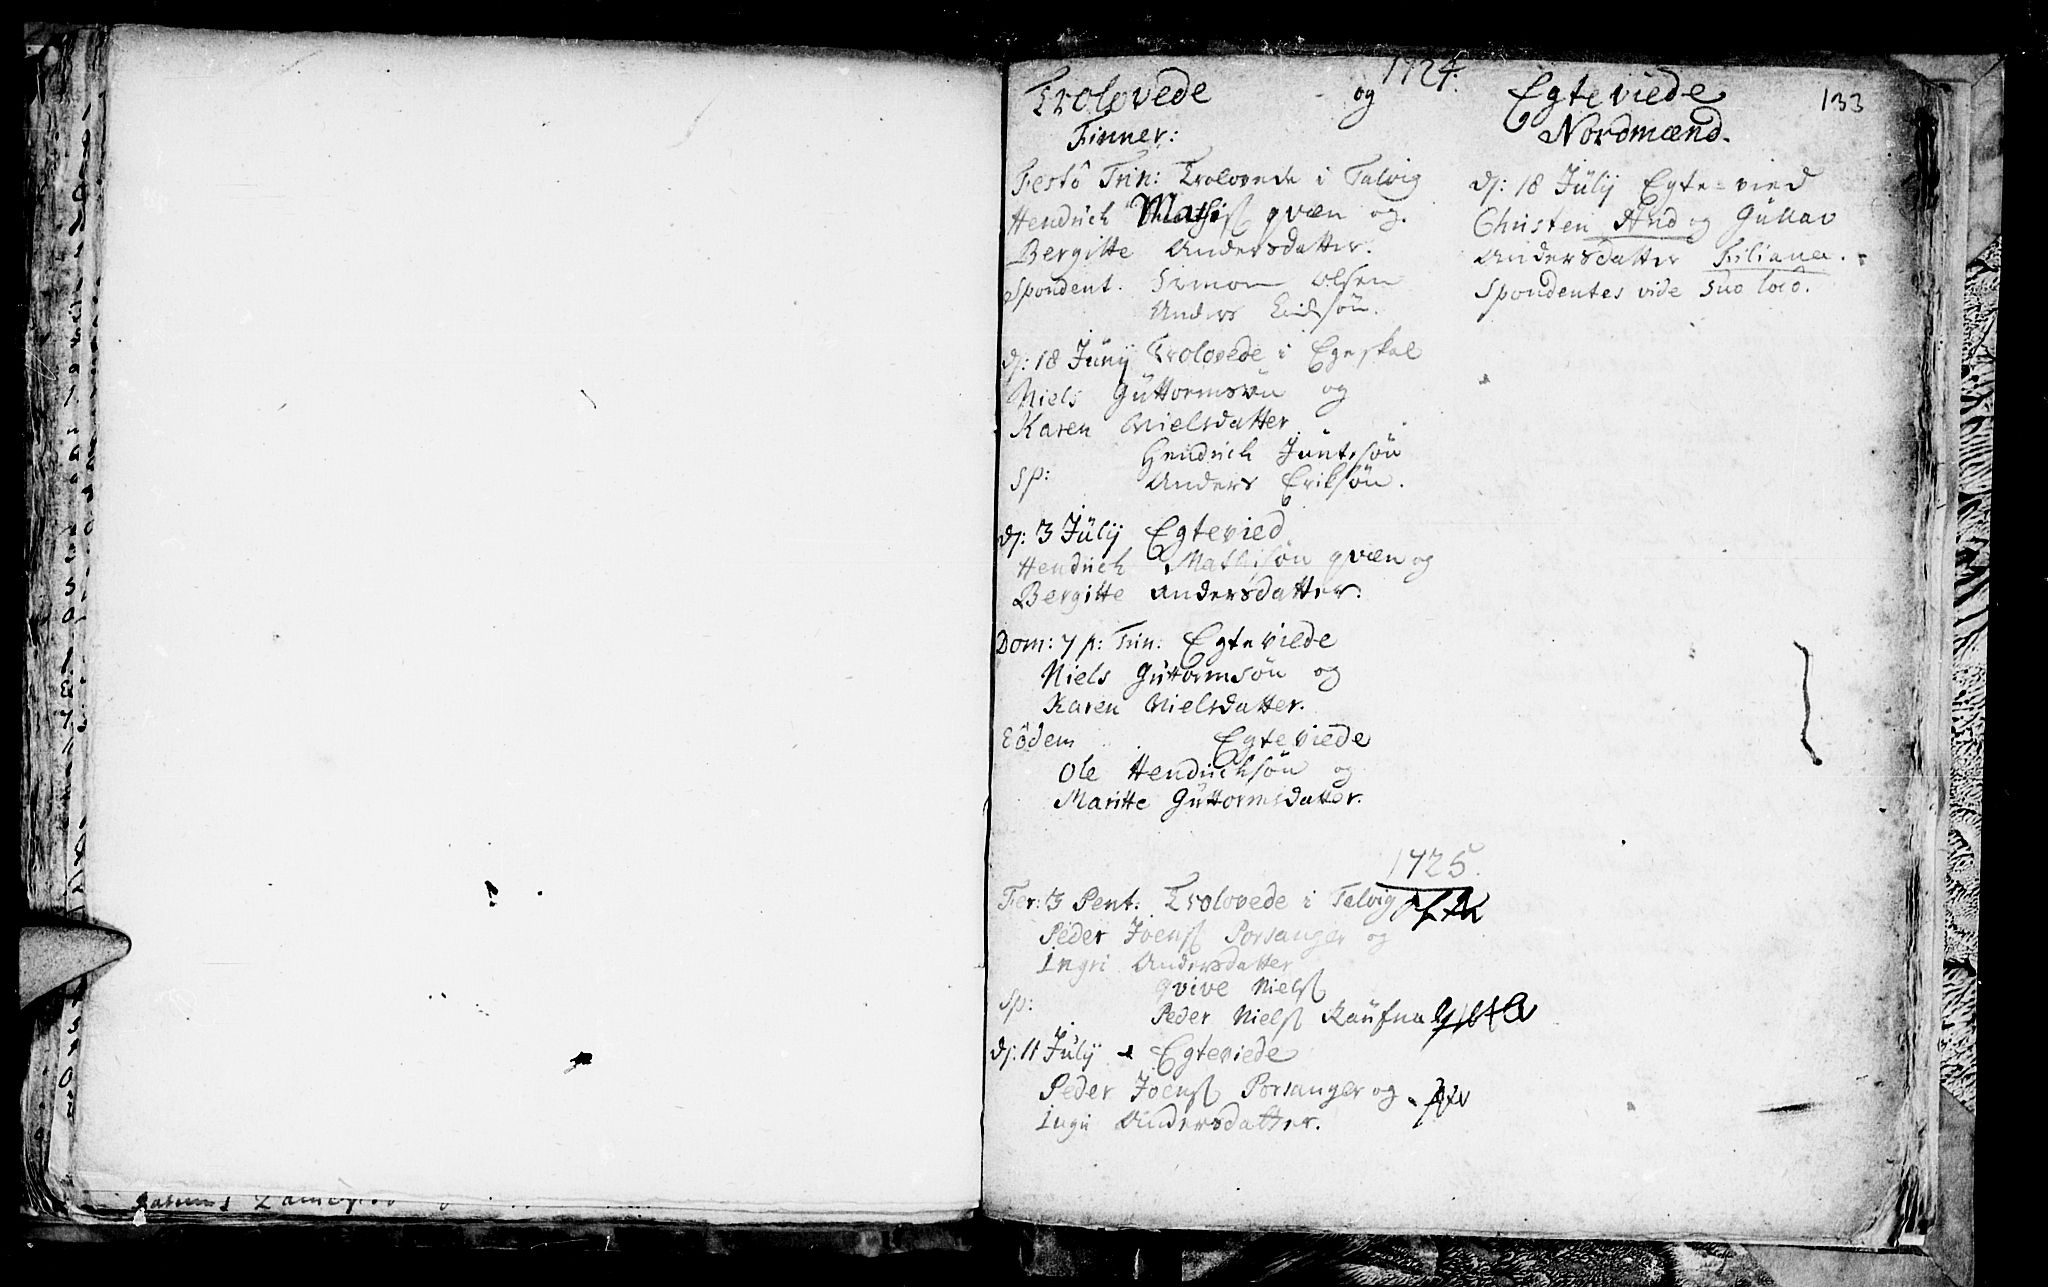 1724.
Trolovede og Egteviede 133
Finner: Nordmænd.
Festô Trin: Trolovede i Talvig
Hendrich Mathisß qvæn og
Bergitte Andersdatter.
Spondent. Simon Olsen
Anders Eriksøn.
dj: 18 Junij Trolovede i Egeskal
Niels Guttormsøn og
Karen Nielsdatter
Hendrich Juntesøn
Sp: Anders Eriksøn.
dj: 3 Julij Egtevied
Hendrich Mathisøn qvæn og
Bergitte Andersdatter.
Dom: 7 p: Trin: Egteviede
Niels Guttormsøn og
Karen Nielsdatter.
Eôdem Egteviede
Ole Hendrichsøn og
Maritte Guttormsdatter.
dj: 18 Julij Egte=vied
Christen And og Gunav
Andersdatter Filiana.
Spondentes vide suo loco.
1725.
Fer: 3 Pent: Trolovede i Talvig
Peder Joensß Porsanger og
Ingri Andersdatter
Qvive Nielsß
Sp: Peder Nielsß Raufna
dj: 11 Julij Egteviede
Peder Joensß Porsanger og
Ingri Andersdatter.